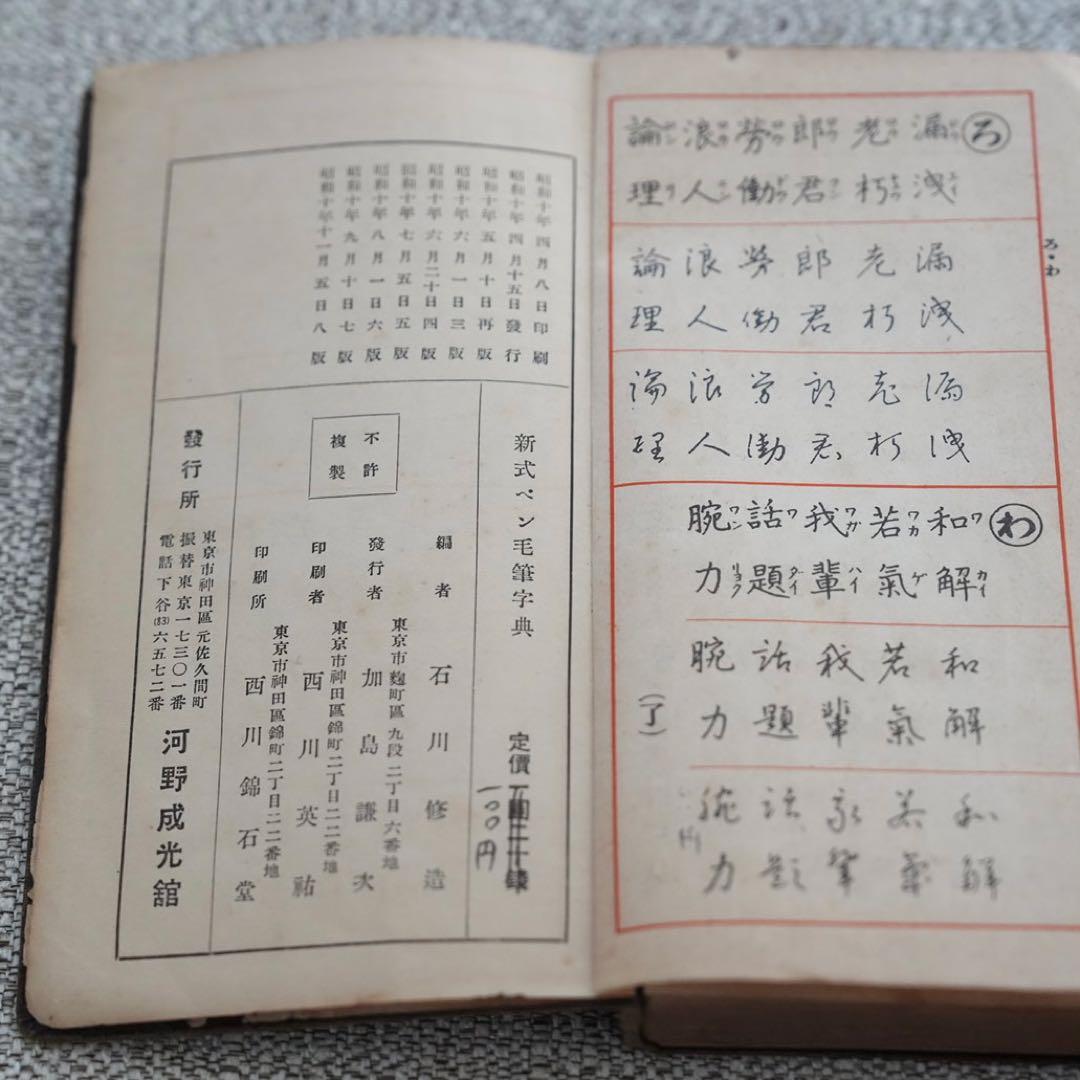 ろ・わ
ろ
漏洩
老朽
郎君
勞働
浪人
論理
漏洩
老朽
郎君
勞働
浪人
論理
漏洩
老朽
郎君
勞働
浪人
論理
わ
和ワ解カイ
若ワカ氣ゲ
我ワガ輩ハイ
話ワ題ダイ
腕ワン力リヨク
和解
若氣
我輩
話題
腕力
和解
若氣
我輩
話題
腕力
(了)
昭和十年四月八日印刷
昭和十年四月十五日發行
昭和十年五月十日再版
昭和十年六月一日三版
昭和十年六月二十日四版
昭和十年七月五日五版
昭和十年八月一日六版
昭和十年九月十日七版
昭和十年十一月五日八版
新式ペン毛筆字典
定價
一〇〇円
不許
複製
編者 石川修造
東京市麴町區九段二丁目六番地
發行者 加島謙次
東京市神田區錦町二丁目二二番地
印刷者 西川英祐
東京市神田區錦町二丁目二二番地
印刷所 西川錦石堂
發行所
東京市神田區元佐久間町
振替東京一七三〇一番
電話下谷(83)六五七二番
河野成光館